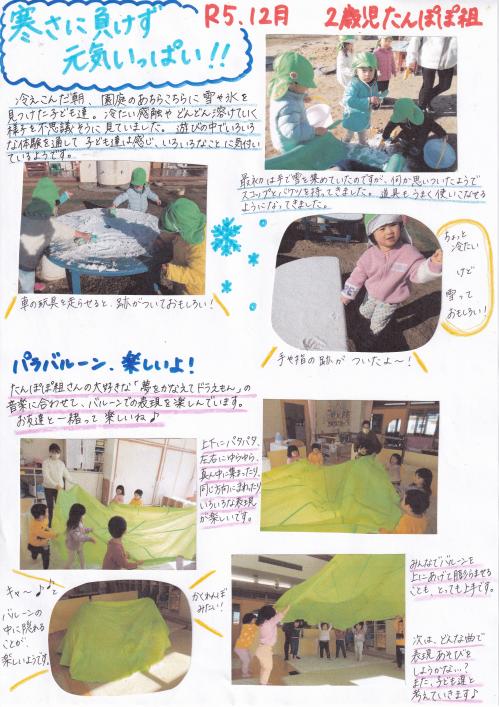 寒さに負けず
元気いっぱい!!
R5.12月 2歳児たんぽぽ組
冷えこんだ朝、園庭のあちらこちらに雪や氷を
見つけた子ども達。冷たい感触やどんどん溶けていく
様子を不思議そうに見ていました。遊びの中でいろいろ
な体験を通して子ども達は感じ、いろいろなことに気付い
ているようです。
最初は手で雪を集めていたのですが、何か思いついたようで
スコップとバケツを持ってきました。道具もうまく使いこなせる
ようになってきました。
車の玩具を走らせると、跡がついておもしろい!
ちょっと
冷たい
けど
雪って
おもしろい!
手や指の跡がついたよ〜!
パラバルーン、楽しいよ!
たんぽぽ組さんの大好きな「夢をかなえてドラえもん」の
音楽に合わせて、バルーンでの表現を楽しんでいます。
お友達と一緒って楽しいね♪
上下にパタパタ、
左右にゆらゆら、
真ん中に集まったり、
同じ方向にまわったり
いろいろな表現
が楽しいです。
キャ〜♪♪と
バルーンの
中に隠れる
ことが、
楽しいようです。
かくれんぼ
みたい!
みんなでバルーンを
上にあげて膨らませる
ことも、とっても上手です。
次は、どんな曲で
表現あそびを
しようかな…?
また、子ども達と
考えていきます♪